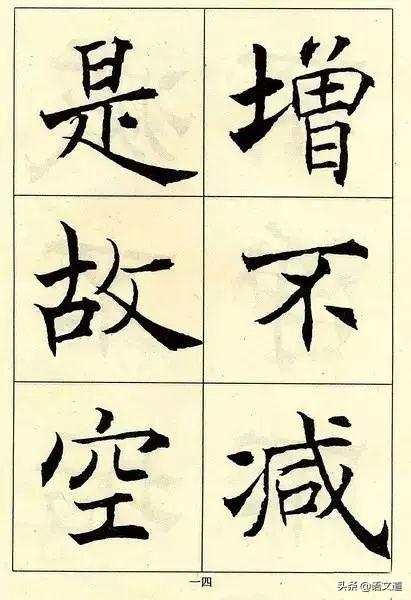 增不減
是故空
一四
头条@语文道